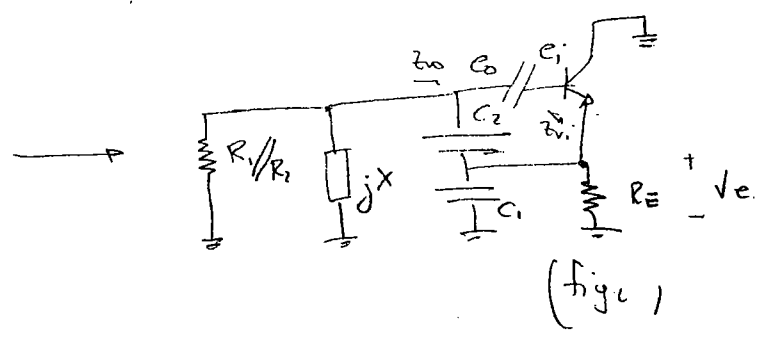 Zvo
eo
ei
C2
Zvi
R1//R2
jX
C1
RE
+
Ve
-
(fig